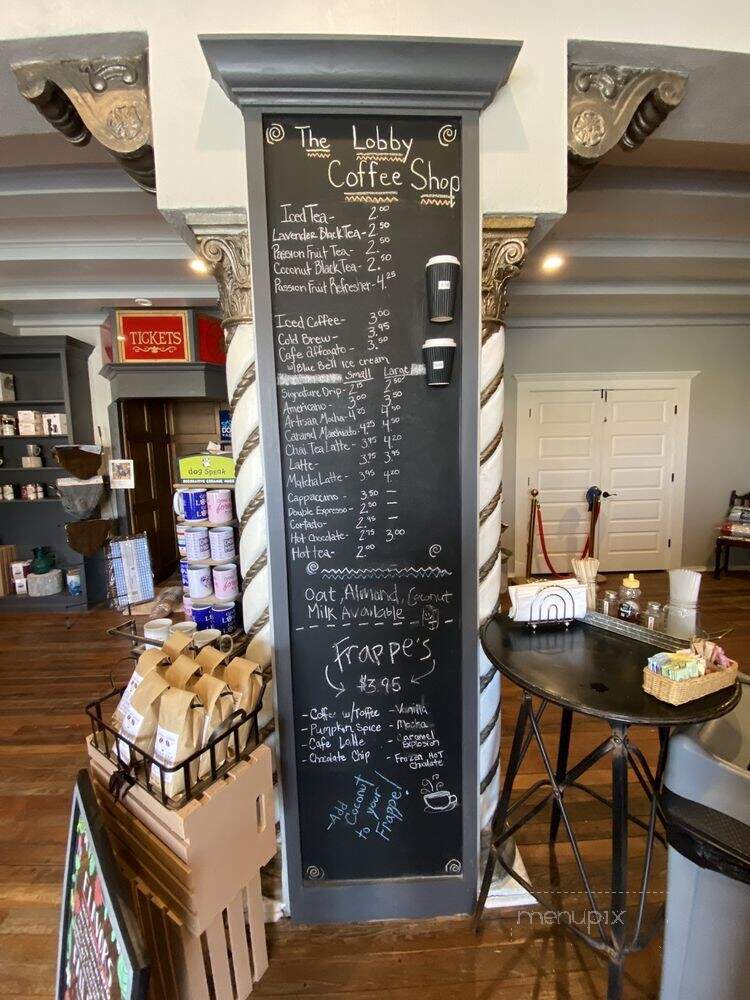 The Lobby
Coffee Shop
Iced Tea - 2.00
Lavender Black Tea - 2.50
Passion Fruit Tea - 2.50
Coconut Black Tea - 2.50
Passion Fruit Refresher - 4.25
Iced Coffee - 3.00
Cold Brew - 3.95
Cafe affogato - 3.50
w/ Blue Bell ice cream
Small Large
Signature Drip - 2.15 2.50
Americano - 3.00 3.50
Artisan Mocha - 4.25 4.50
Caramel Macchiato - 4.25 4.50
Chai Tea Latte - 3.95 4.20
Latte - 3.75 3.95
Matcha Latte - 3.95 4.20
Cappaccino - 3.50 —
Double Espresso - 2.50 —
Cortado - 2.95 —
Hot Chocolate - 2.75 3.00
Hot tea - 2.00
Oat, Almond, Coconut
Milk Available
Frappe's
$3.95
- Coffee w/ Toffee
- Pumpkin Spice
- Cafe Latte
- Chocolate Chip
- Vanilla
- Mocha
- Caramel
Explosion
- Frozen Hot
Chocolate
- Add
Coconut
to your
Frappe!
TICKETS
dog Speak
DECORATIVE CERAMIC MUGS
menupix